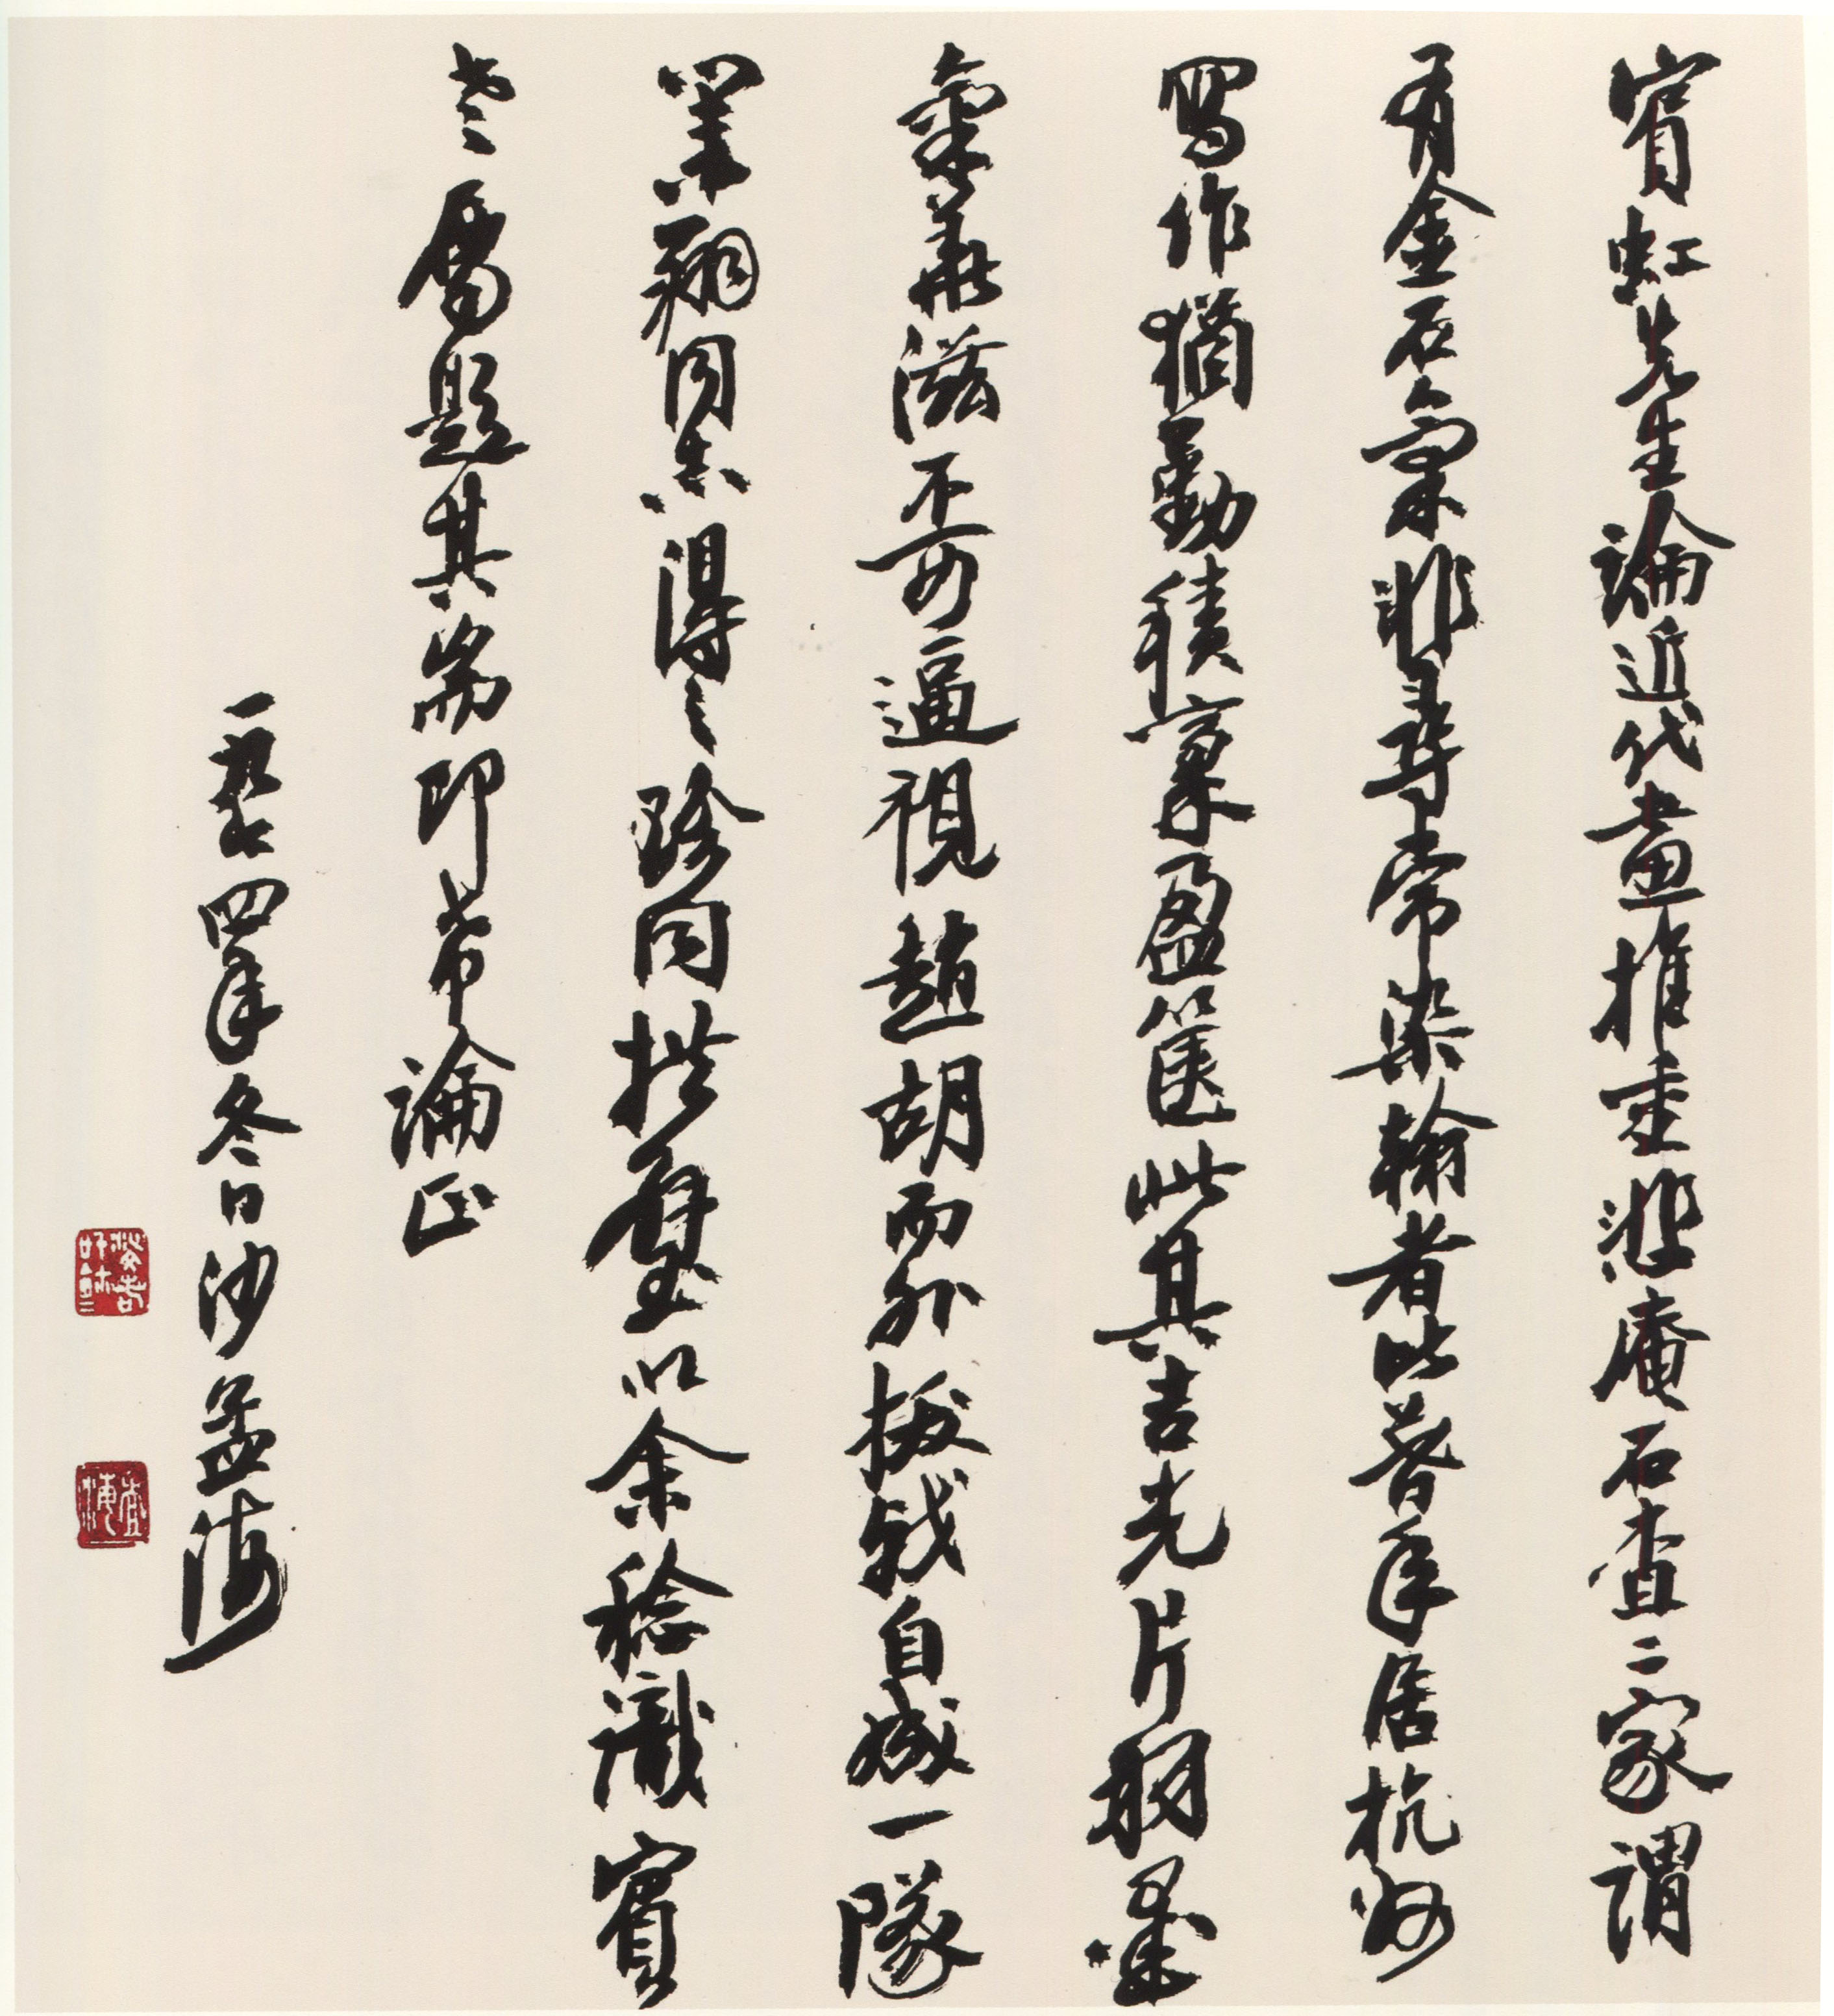 賓虹先生論近代畫推重悲庵石查二家謂
有金石氣非尋常染翰者比暮年居杭州
寫作猶勤積稾盈篋此其吉光片羽墨
氣華滋不可逼視趙胡而外拔戟自成一隊
業翔同志得之珍同拱璧以余稔識賓
老屬題其耑即希論正
一九七四年冬日沙孟海